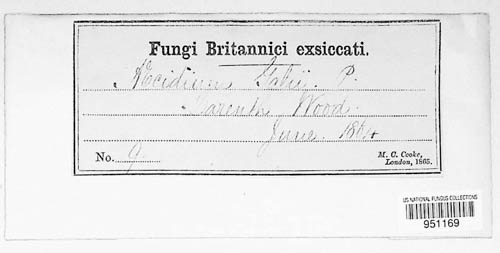 Fungi Britannici exsiccati.
Æcidium Galii. P.
Darenth Wood.
June. 1864
No. 9
M. C. Cooke,
London, 1865.
US NATIONAL FUNGUS COLLECTIONS
951169